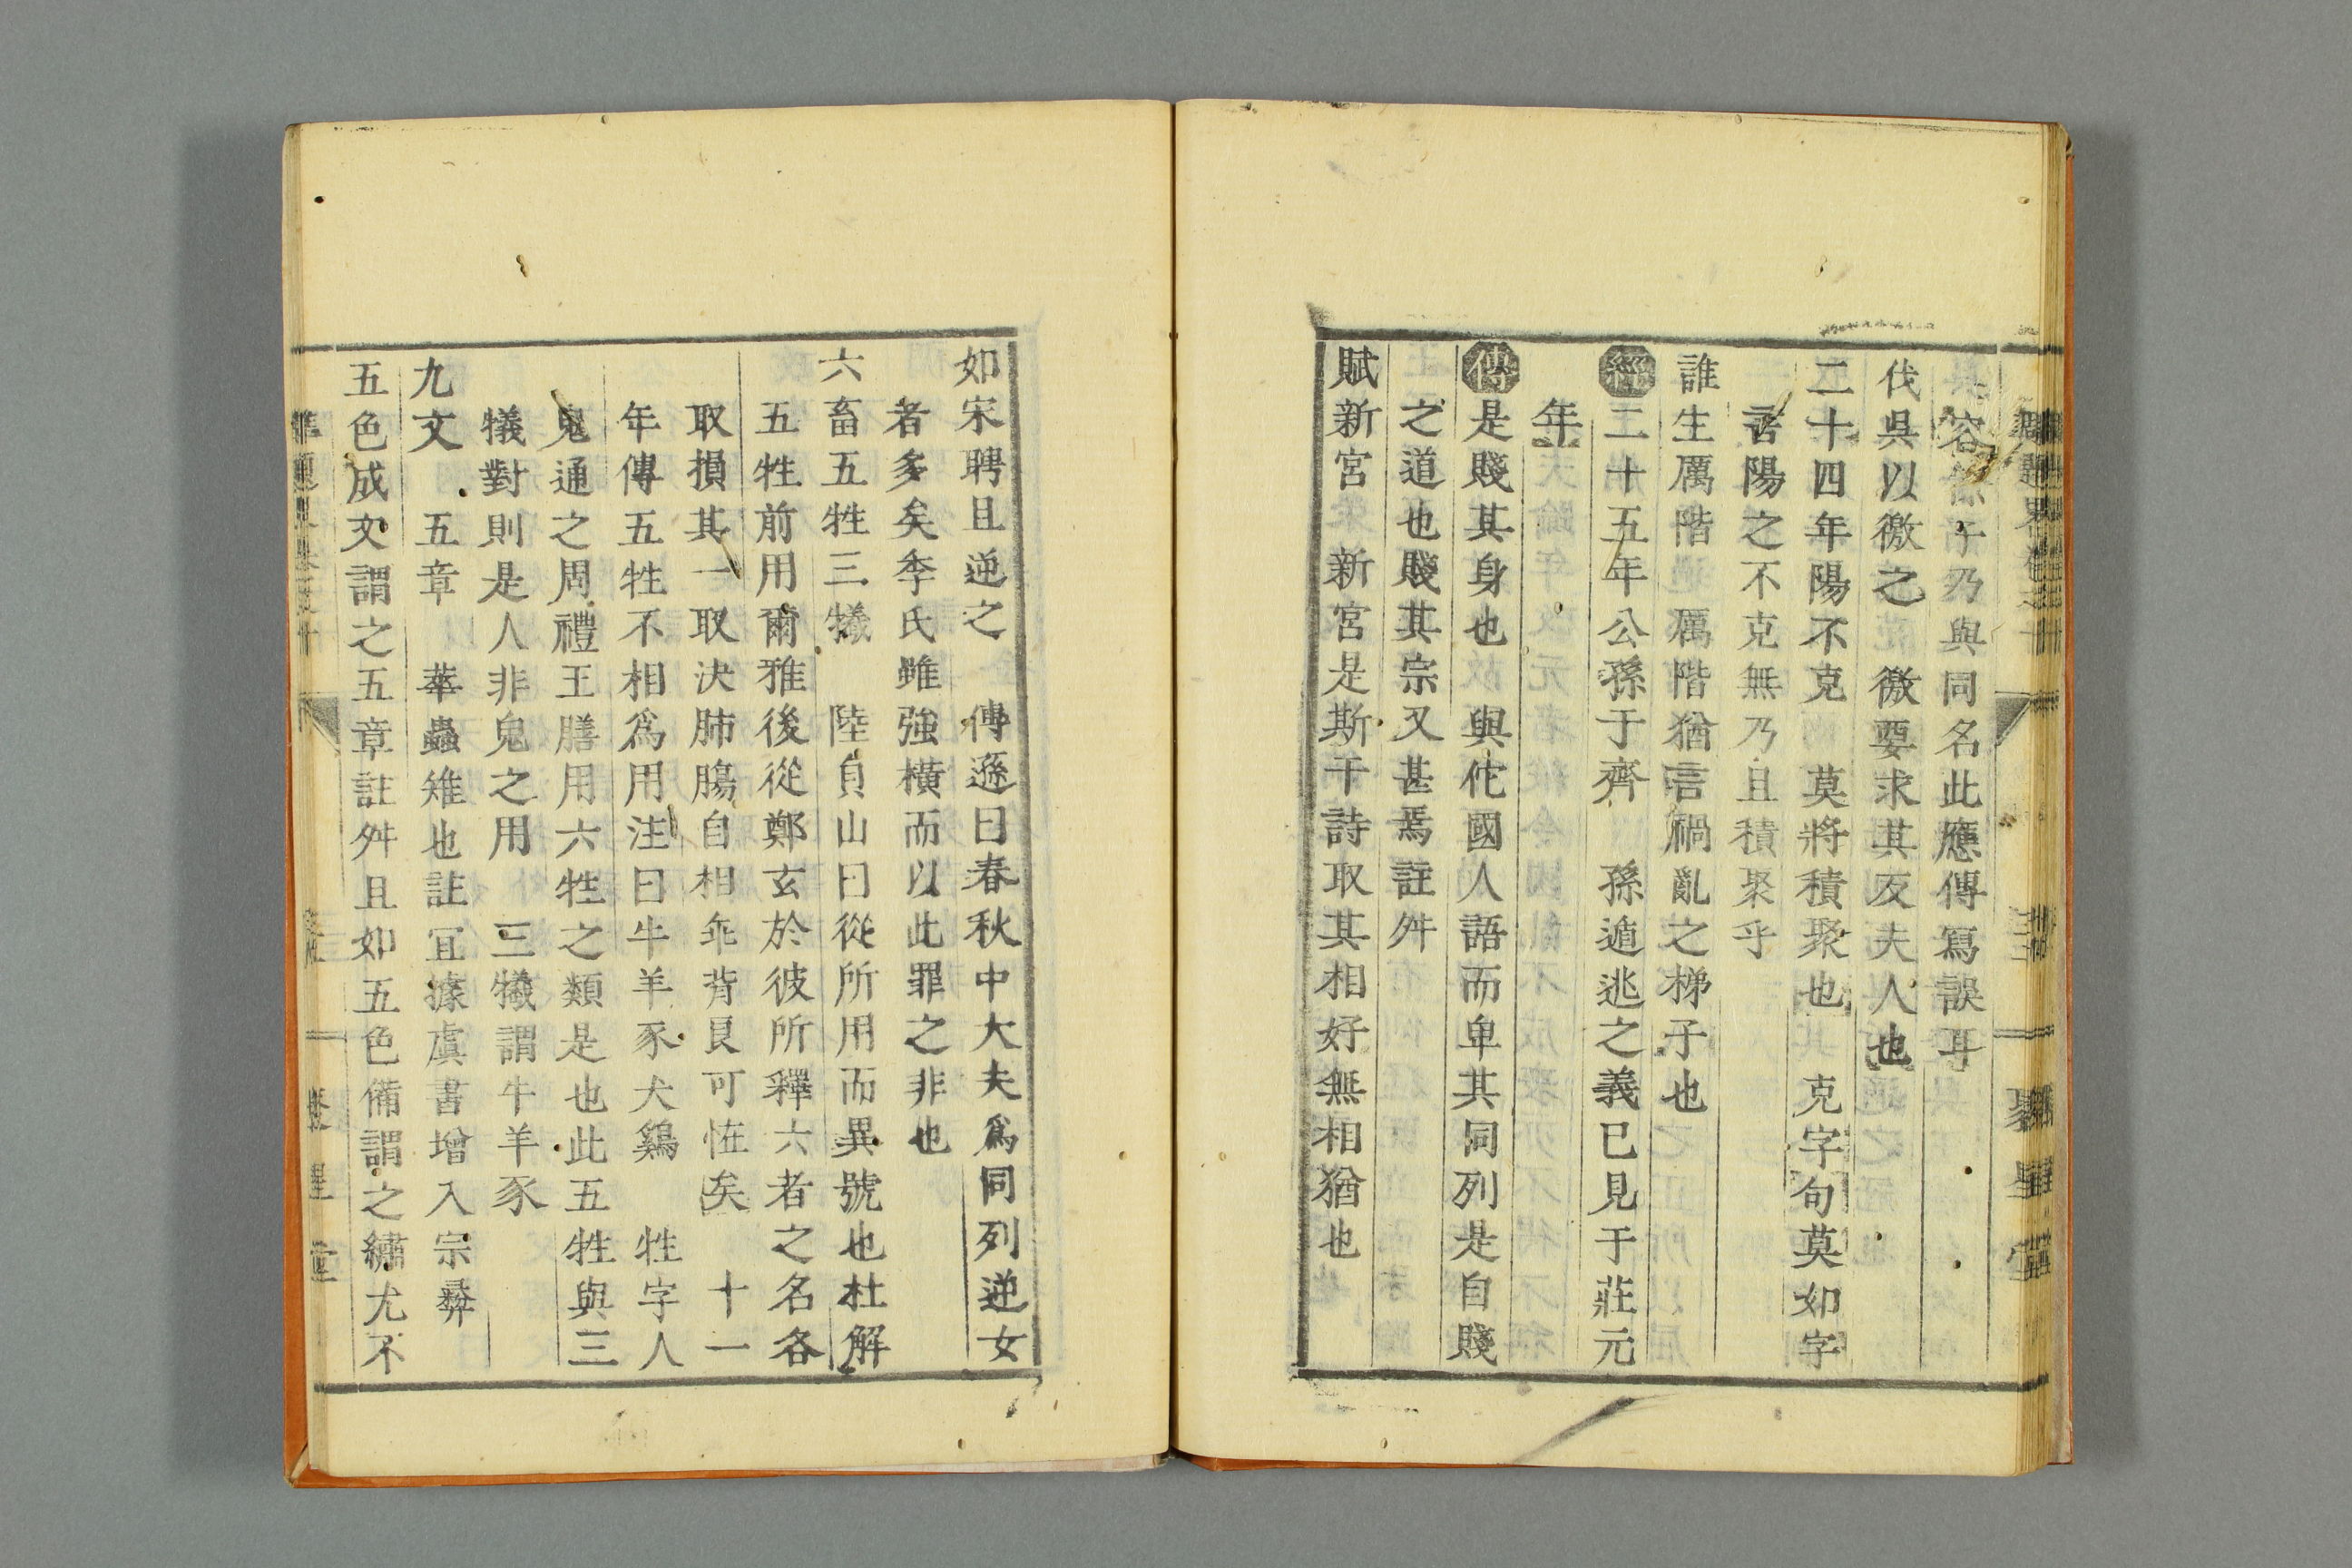 容孫子乃與同名此應傳寫誤耳
伐吳以徼之　徼要求其友夫人也
二十四年陽不克　莫將積聚也　克字句莫如字
言陽之不克無乃且積聚乎
誰生厲階　厲階猶言禍亂之梯子也
經二十五年公孫于齊　孫遁逃之義已見于莊元
年
傳是賤其身也　與佗國人語而卑其同列是自賤
之道也賤其宗又甚焉註舛
賦新宮　新宮是斯干詩取其相好無相猶也
如宋聘且逆之　傳遜曰春秋中大夫爲同列逆女
者多矣季氏雖強橫而以此罪之非也
六畜五牲三犧　陸貞山曰從所用而異號也杜解
五牲前用爾雅後從鄭玄於彼所釋六者之名各
取損其一取決肺腸自相乖背良可恠矣　十一
年傳五牲不相爲用注曰牛羊豕犬鷄　牲字人
鬼通之周禮王膳用六牲之類是也此五牲與三
犧對則是人非鬼之用　三犧謂牛羊豕
九文　五章　華蟲雉也註冝據虞書增入宗彜
五色成文謂之五章註舛且如五色備謂之繡尤不